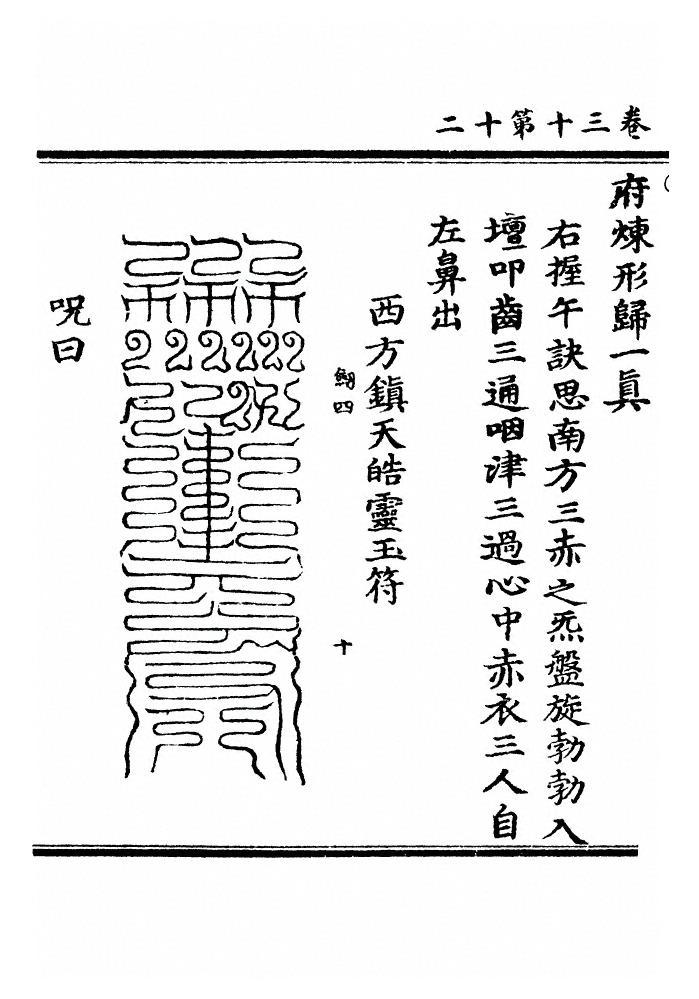 卷三十第十二
府煉形歸一眞
右握午訣思南方三赤之炁盤旋勃勃入
壇叩齒三通咽津三過心中赤衣三人自
左鼻出
西方鎮天皓靈玉符
四
十
呪曰